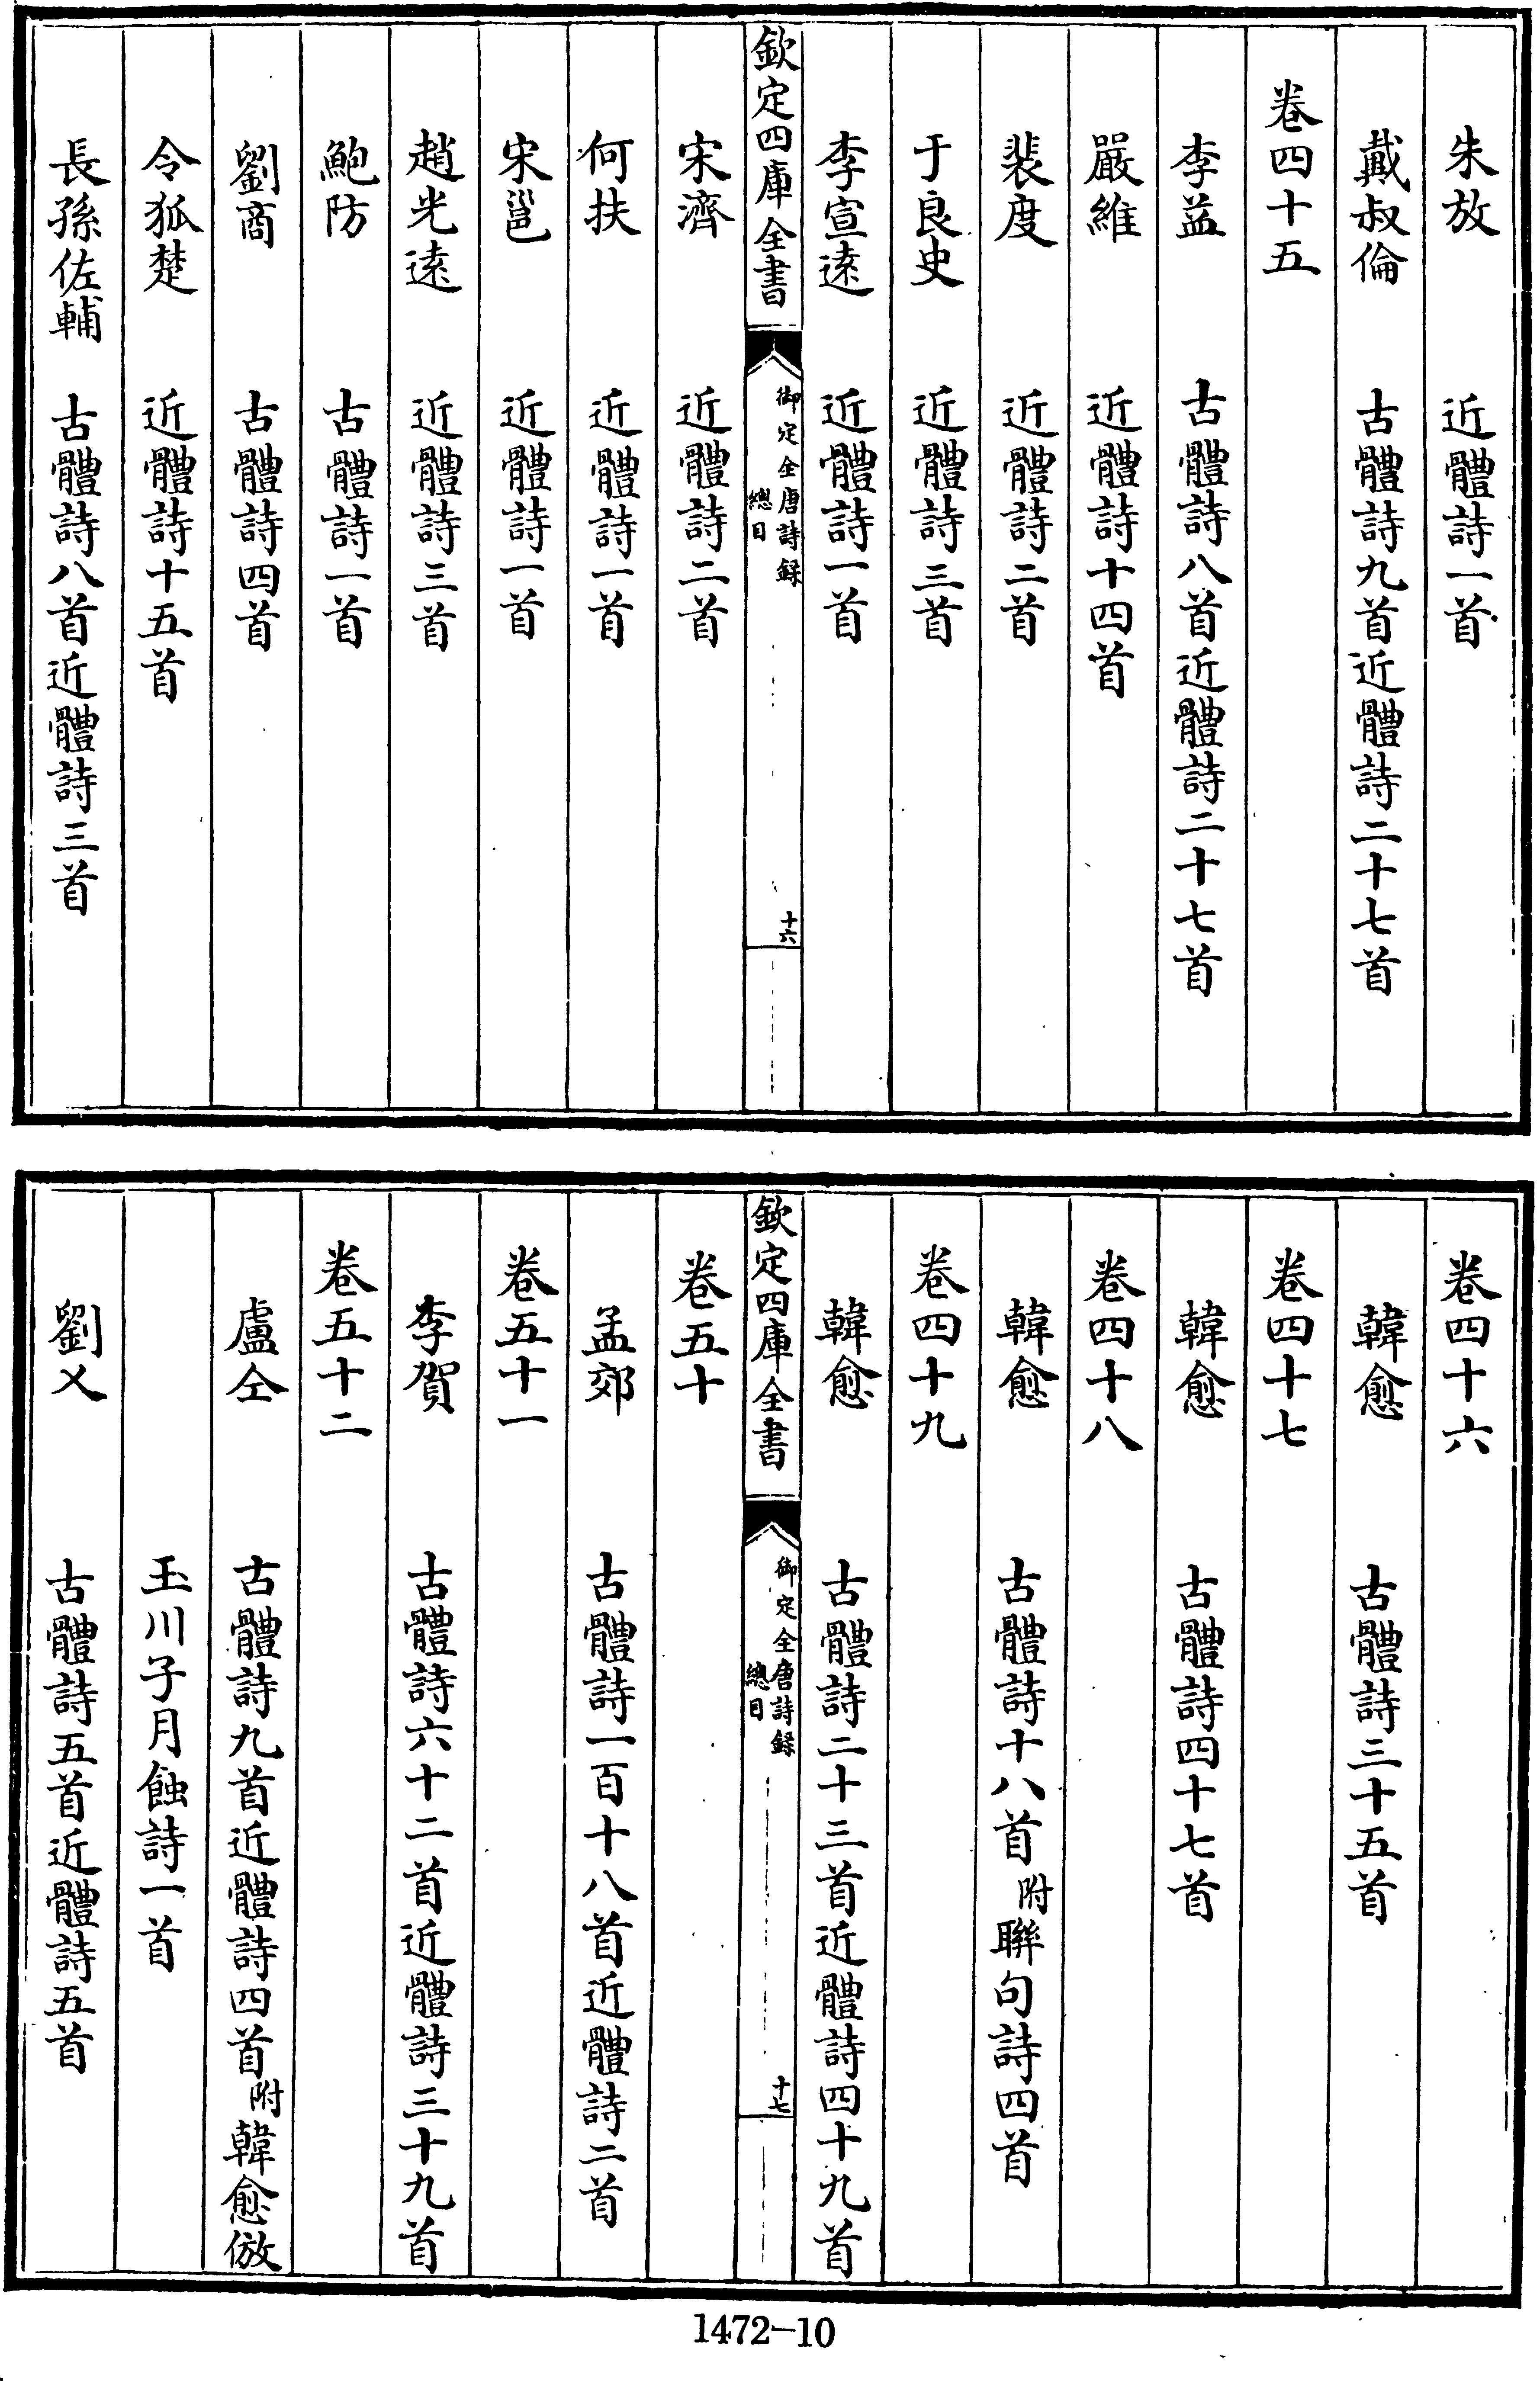 朱放　近體詩一首
戴叔倫　古體詩九首近體詩二十七首
卷四十五
李益　古體詩八首近體詩二十七首
嚴維　近體詩十四首
裴度　近體詩二首
于良史　近體詩三首
李宣遠　近體詩一首
欽定四庫全書
御定全唐詩録
總目
十六
宋濟　近體詩二首
何扶　近體詩一首
宋邕　近體詩一首
趙光遠　近體詩三首
鮑防　古體詩一首
劉商　古體詩四首
令狐楚　近體詩十五首
長孫佐輔　古體詩八首近體詩三首
卷四十六
韓愈　古體詩三十五首
卷四十七
韓愈　古體詩四十七首
卷四十八
韓愈　古體詩十八首附聯句詩四首
卷四十九
韓愈　古體詩二十三首近體詩四十九首
欽定四庫全書
御定全唐詩録
總目
十七
卷五十
孟郊　古體詩一百十八首近體詩二首
卷五十一
李賀　古體詩六十二首近體詩三十九首
卷五十二
盧仝　古體詩九首近體詩四首附韓愈倣
玉川子月蝕詩一首
劉乂　古體詩五首近體詩五首
1472-10